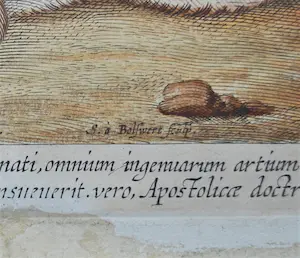 B. à Bolswert sculp.
nati, omnium ingenuarum artium
nsueuerit. vero, Apostolicæ doctr